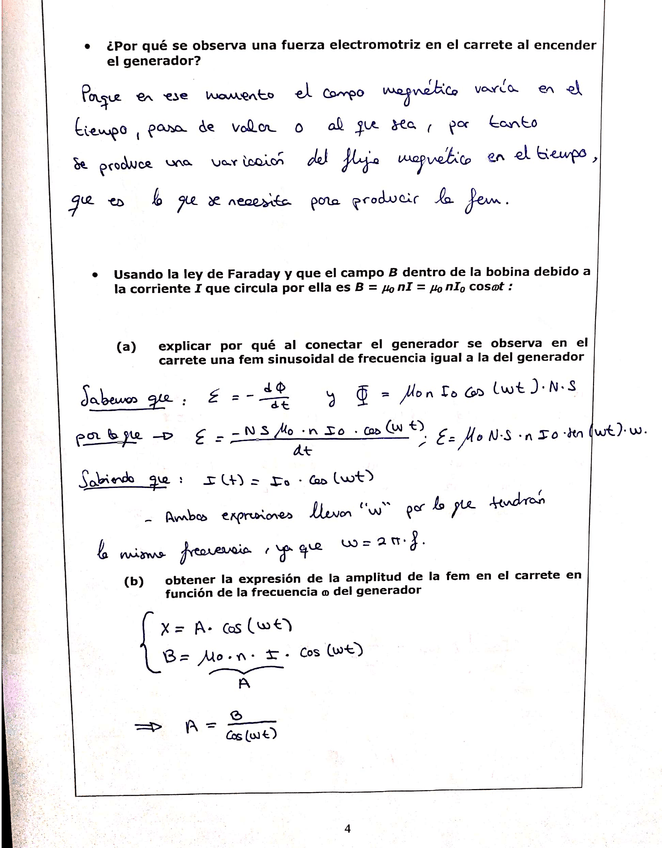 • ¿Por qué se observa una fuerza electromotriz en el carrete al encender
el generador?
Porque en ese momento el campo magnético varía en el
tiempo, pasa de valor 0 al que sea, por tanto
se produce una variación del flujo magnético en el tiempo,
que es lo que se necesita para producir la fem.
• Usando la ley de Faraday y que el campo B dentro de la bobina debido a
la corriente I que circula por ella es B = μ₀ nI = μ₀ nI₀ cosωt :
(a) explicar por qué al conectar el generador se observa en el
carrete una fem sinusoidal de frecuencia igual a la del generador
Sabemos que : ε = - dΦ/dt y Φ = μ₀ n I₀ cos (ωt) · N · S
por lo que → ε = -N S μ₀ · n I₀ · cos (ωt) / dt ; ε = μ₀ N·S · n I₀ · sen (ωt) · ω.
Sabiendo que : I(t) = I₀ · cos (ωt)
- Ambas expresiones llevan "ω" por lo que tendrán
la misma frecuencia, ya que ω = 2π · f.
(b) obtener la expresión de la amplitud de la fem en el carrete en
función de la frecuencia ω del generador
X = A · cos (ωt)
B = μ₀ · n · I · cos (ωt)
A
⇒ A = B / cos (ωt)
4